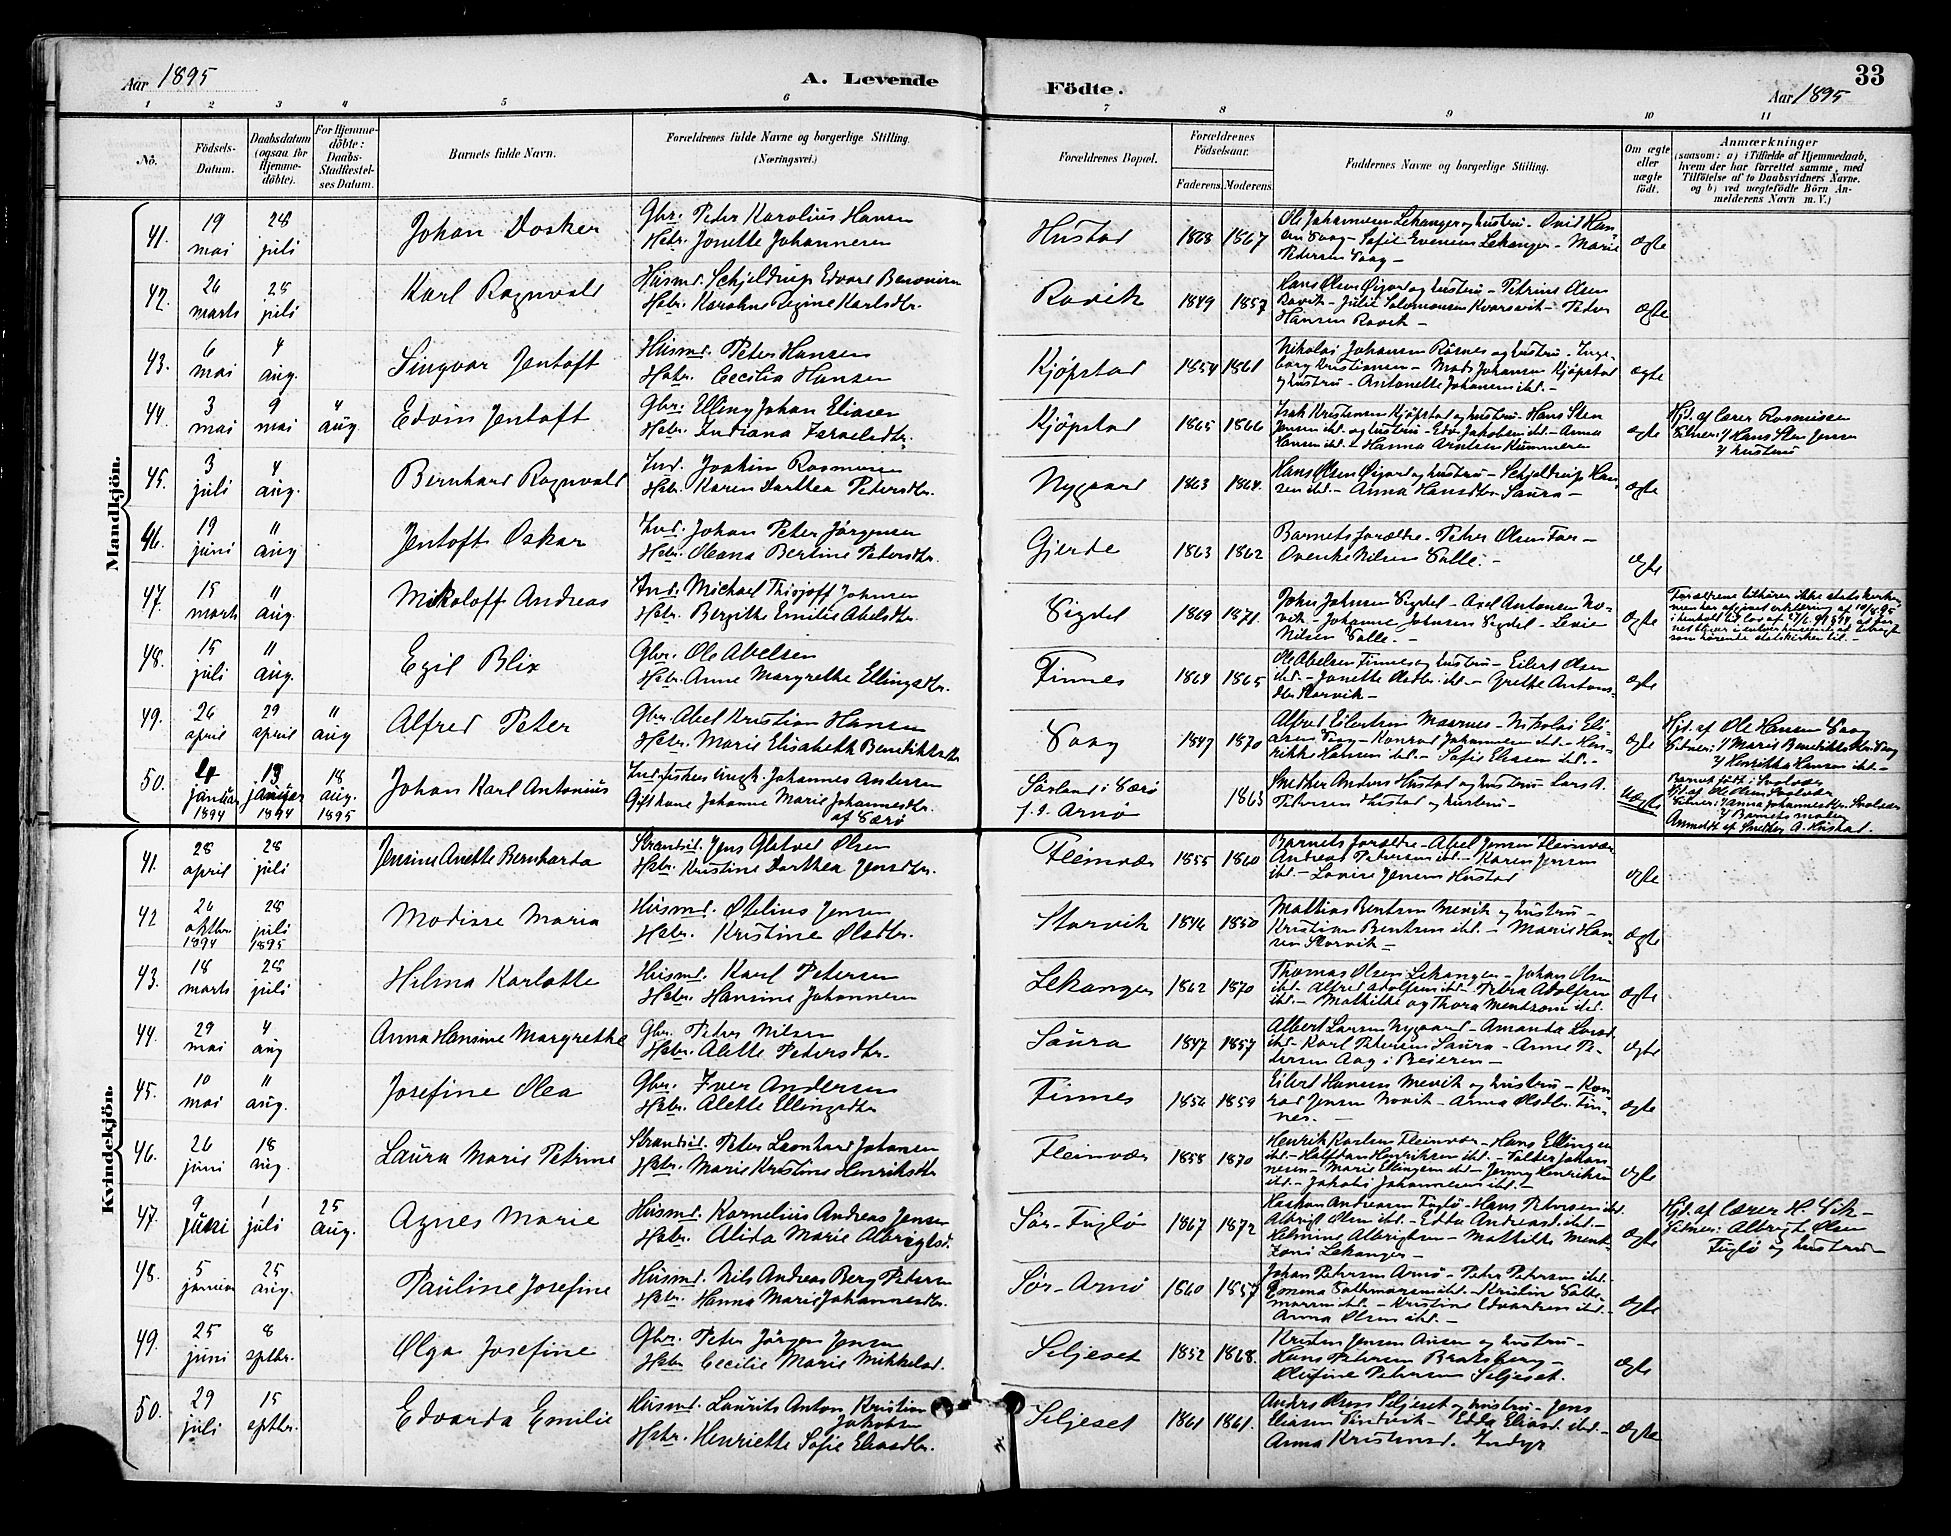 Aar 1895
A. Levende
Födte.
33
Aar 1895
1 2 3 4 5 6 7 8 9 10 11
No.
Födsels-
Datum.
Daabsdatum
(ogsaa for
Hjemme-
döbte).
For Hjemme-
döbte:
Daabs-
Stadfæstel-
ses Datum.
Barnets fulde Navn.
Forældrenes fulde Navne og borgerlige Stilling.
(Næringsvei.)
Forældrenes Bopæl.
Forældrenes
Födselsaar.
Faderens. Moderens.
Faddernes Navne og borgerlige Stilling.
Om ægte
eller
uægte
födt.
Anmærkninger
(saasom: a) i Tilfælde af Hjemmedaab,
hvem der har forrettet samme, med
Tilföielse af to Daabsvidners Navne.
og b) ved uegtefödte Börn An-
melderens Navn m. V.)
Mandkjön.
41. 19 mai 28 juli Johan Dosker
Gbr. Peter Karolius Hansen
Hstr. Jonette Johannesen
Hustad 1868 1867
Ole Johannesen Lekanger og hustru - Ovid Han-
sen Saag - Sofie Evensen Lekanger - Marie
Petersen Saag -
ægte
42. 26 marts 28 juli Karl Ragnvald
Husmd. Schjeldrup Edvard
Hstr. Karoline Regine Karlsdtr.
Rovik 1849 1857
Hans Olsen Øigard og hustru - Petrine Olsen
Rovik - Julie Salomonsen Kvarsvik - Peder
Hansen Rovik -
ægte
43. 6 mai 4 aug. Singvar Jentoft
Husmd. Peter Hansen
Hstr. Cecilia Hansen
Kjøpstad 1854 1861
Nikolai Johansen Røsnes og hustru - Inge-
borg Kristiansen - Mads Johansen Kjøpstad
og hustru - Antonette Johansen ibd. -
ægte
44. 3 mai 9 mai 4 aug. Edvin Jentoft
Gbr. Elling Johan Eliasen
Hstr. Indiana Israelsdtr.
Kjøpstad 1865 1866
Isak Kristensen Kjøpstad og hustru - Hans Sten
Jensen ibd. og hustru - Edv. Jakobsen ibd. - Anna
Hansen ibd. - Hanna Arntsen
ægte
Hjd. af Lærer Rasmussen
Vidner: 1/ Hans Sten Jensen
2/ hustru
45. 3 juli 4 aug. Bernhard Ragnvald
Ind. Joakim Rasmussen
Hstr. Karen Dorthea Petersdtr.
Nygaard 1863 1864.
Hans Olsen Øigard og hustru - Schjeldrup Han-
sen ibd. - Anna Hansdtr. Saura -
ægte
46. 19 juni " aug Jentoft Oskar
Ind. Johan Peter Jørgensen
Hstr. Oleana Bertine Petersdtr.
Gjerde 1863 1862
Barnets forældre - Peter Olsen
Nilsen Valle. -
ægte
47. 15 marts " aug. Mikaloff Andreas
Ind. Michael Thisjoff Johnsen
Hstr. Bergithe Emilie Abelsdtr.
Sigdel 1869 1871.
John Johnsen Sigdel - Axel Antonsen No-
vik - Johanne Johnsen Sigdel -
Nilsen Valle. -
ægte
Forældrene tilhører ikke statskirken
men har afgivet erklæring af 10/8 95
i henhold til lov af 27/6 91 §
som hørende statskirken til.
48. 15 juli " aug. Egil Blix
Gbr. Ole Abelsen
Hstr. Anne Margrethe Ellingsdtr.
Finnes 1864 1865
Ole Abelsen Finnes og hustru - Eilert Olsen
ibd. - Jonette Olsdtr. ibd. - Grethe Antons-
dtr. Storvik -
ægte
49. 26 april 29 april " aug Alfred Peter
Gbr. Abel Kristian Hansen
Hstr. Marie Elisabeth Bendiktsdtr
Saag 1847 1870
Alfred Eilertsen Maarnes - Nikolai Eli-
asen Saag - Konrad Johannesen ibd. - Hen-
rikke Hansen ibd. - Sofie Eliasen ibd. -
ægte
Hjd. af Ole Hansen Saag
Vidner: 1/ Marie Benediktsdtr. Saag
2/ Henrikka Hansen ibd. -
50. 4 januar 1894 13 januar 1894 18 aug. 1895 Johan Karl Antonius
Ind. fisker Ungk. Johannes Andersen
Gift kone Johanne Marie Johannesdtr.
af Værø
Sørland i Værø
f. I. Arnø
1863
Smedker Anders Hustad og hustru - Lars A.
Petersen Hustad og hustru -
Uægte
Barnet født i Svolvær
Hjd. af Ole Olsen Svolvær
Vidner: 1/ Anna Johannesdtr. Svolvær
2/ Barnets moder
Anmeldt af Smedker A. Hustad.
Kvindekjön.
41. 28 april 28 juli Jensine Anette Bernharda
Strandsid. Jens Glatved Olsen
Hstr. Kristine Dorthea Jensdtr.
Fleinvær 1855 1860
Barnets forældre - Abel Jensen Fleinvær
Andreas Petersen ibd. - Karen Jensen
ibd. - Lovise Jensen Hustad
ægte
42 26 oktbr. 1894 28 juli 1895 Modisse Maria
Husmd. Otelius Jensen
Hstr. Kristine Olsdtr.
Storvik 1846 1850
Mathias Bentsen Mevik og hustru -
Kristian Bentsen ibd. - Marie Han-
sen Storvik -
ægte
43. 18 marts 28 juli Helma Karlotte
Husmd. Karl Petersen
Hstr. Hansine Johannesen
Lekanger 1862 1870
Thomas Olsen Lekanger - Johan Olsen
ibd. Alfred Adolfsen ibd. - Petra Adolfsen
ibd. - Mathilde og Thora Mentzoni ibd.
ægte
44. 29 mai 4 aug Anna Hansine Margrethe
Gbr. Peter Nilsen
Hstr. Alette Petersdtr.
Saura 1847 1857
Albert Larsen Nygaard - Amanda Larsd.
ibd. - Karl Petersen Saura - Anne Pe-
dersen Aag i Beieren -
ægte
45. 10 mai " aug. Josefine Olea
Gbr. Iver Andersen
Hstr. Alette Ellingsdtr
Finnes 1856 1859
Eilert Hansen Mevik og hustru - Kon-
rad Jensen Novik - Anna Olsdtr. Fin-
nes. -
ægte
46. 26 juni 18 aug. Laura Marie Petrine
Strandsid. Peter Leonhard Johansen
Hstr. Marie Kristine Henriksdtr
Fleinvær 1858 1870
Henrik Karlsen Fleinvær - Hans Ellingsen
ibd. - Halfdan Henriksen ibd. - Johan-
nesen - Marie Ellingsen ibd. - Jenny Henriksen
ibd. - Jakobi Johannesen ibd. -
ægte
47. 9 juni 1 juli 25 aug. Agnes Marie
Husmd. Kornelius Andreas Jensen
Hstr. Alida Marie Albrigtsd.
Sør-Fuglø 1867 1872
Haakon Andreasen Fuglø - Hans Petersen ibd.
Albrigt Olsen ibd. - Edda Andreasd. ibd. -
Helmine Albrigtsen - Mathilde Ment-
zoni Lekanger -
ægte
Hjd. af Lærer H. Vik -
Vidner: Albregt Olsen
Fuglø og hustru
48. 5 januar 25 aug. Pauline Josefine
Husmd. Nils Andreas Berg Petersen
Hstr. Hanna Marie Johannesdtr.
Sør-Arnø 1860 1857
Johan Petersen Arnø - Peter Petersen ibd. -
Emma ibd. - Kristine
ibd. - Kristine Edvardsen ibd. -
Anna Olsen ibd. -
ægte
49. 25 juni 8 septbr. Olga Josefine
Gbr. Peter Jørgen Jensen
Hstr Cecilie Marie Mikkelsd.
Seljeset 1852 1868.
Kristen Jensen Ausen og hustru -
Hans Petersen Bratsberg -
Olufine Petersen Seljeset.
ægte
50. 29 juli 15 septbr. Edvarda Emilie
Husmd. Laurits Anton Kristian
Jakobsen
Hstr. Henriette Sofie Eliasdtr.
Seljeset 1861 1861.
Anders Olsen Seljeset og hustru - Jens
Eliasen Sandvik - Edda Eliasd. ibd. -
Anna Kristensd. Indyr
ægte